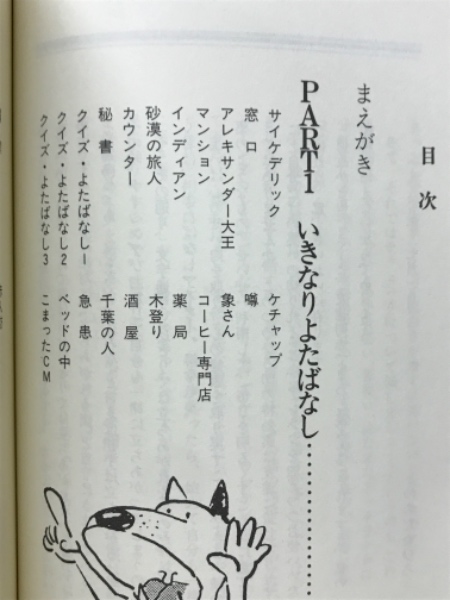 目次
まえがき
PART1 いきなりよたばなし…………………
サイケデリック ケチャップ
窓口 噂
アレキサンダー大王 象さん
マンション コーヒー専門店
インディアン 薬局
砂漠の旅人 木登り
カウンター 酒屋
秘書 千葉の人
クイズ・よたばなし1 急患
クイズ・よたばなし2 ベッドの中
クイズ・よたばなし3 こまったCM